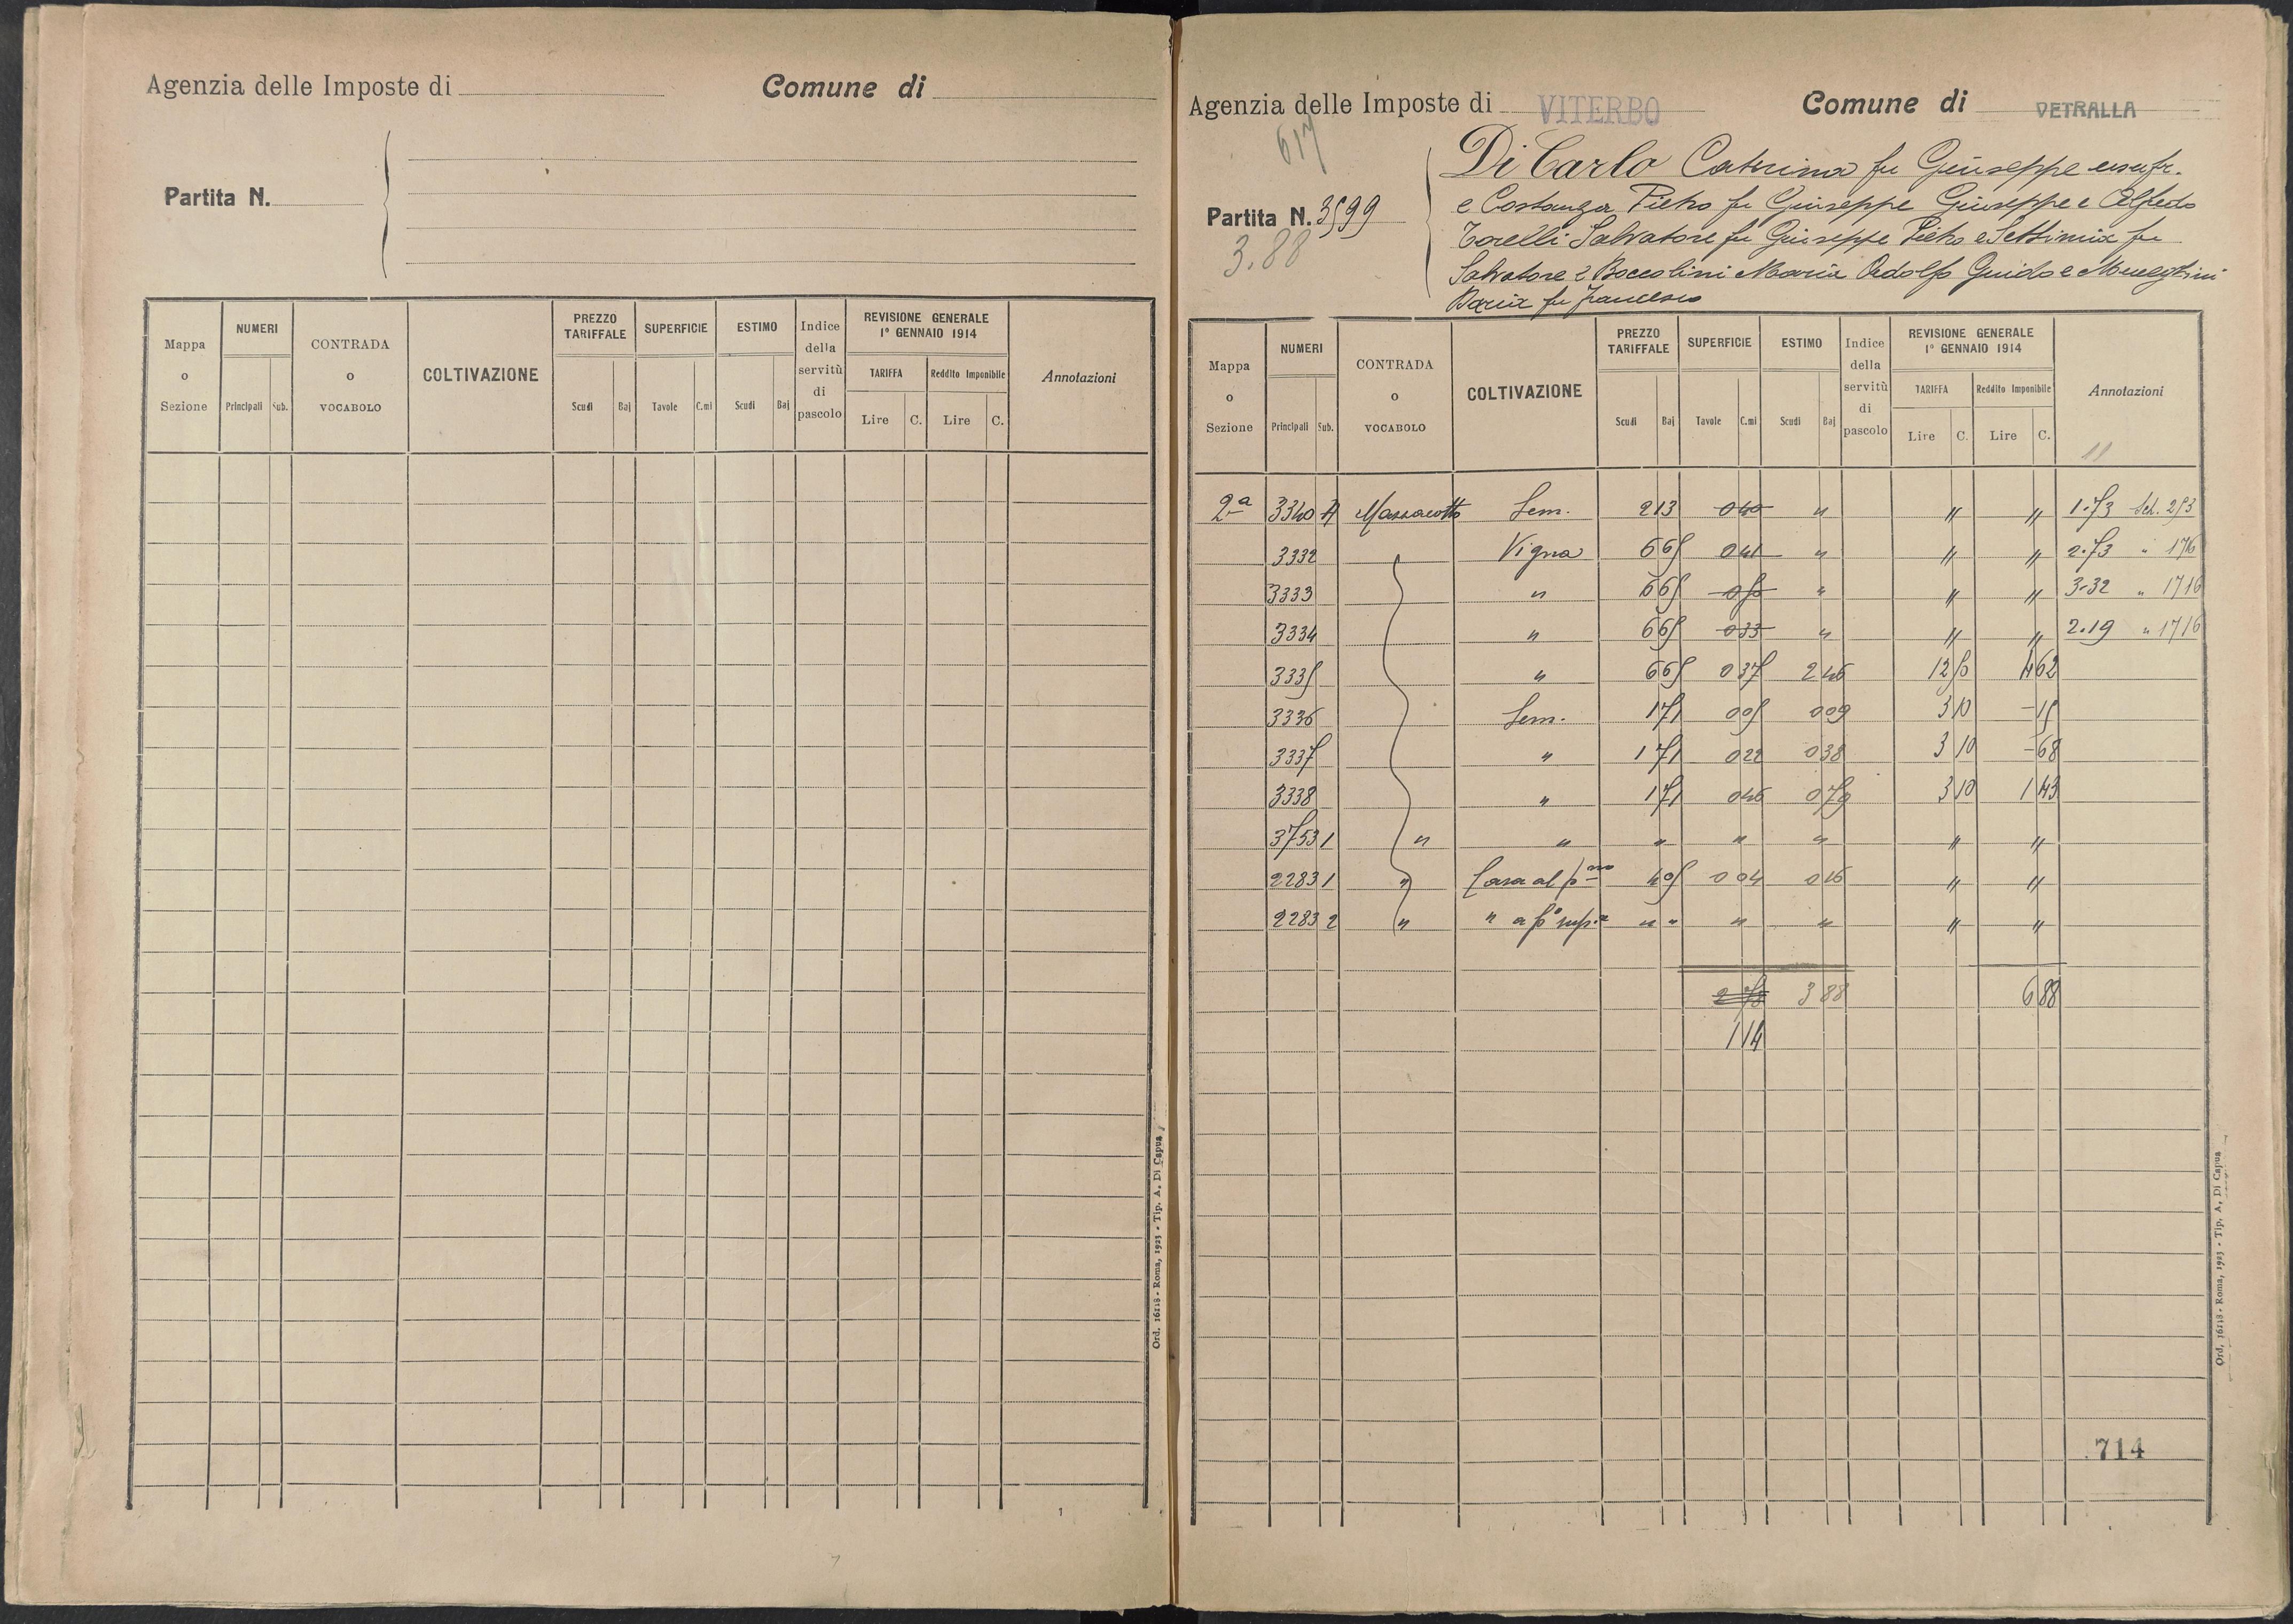 Agenzia delle Imposte di Comune di
Partita N.
Mappa o Sezione NUMERI Principali Sub. CONTRADA o VOCABOLO COLTIVAZIONE PREZZO TARIFFALE Scudi Baj SUPERFICIE Tavole C.mi ESTIMO Scudi Baj Indice della servitù di pascolo REVISIONE GENERALE 1° GENNAIO 1914 TARIFFA Lire C. Reddito Imponibile Lire C. Annotazioni
Ord. 16118 - Roma, 1923 - Tip. A. Di Capua
1
Agenzia delle Imposte di VITERBO Comune di VETRALLA
617
Partita N. 3599
3.88
Di Carlo Caterina fu Giuseppe usufr.
e Costanza Pietro fu Giuseppe Giuseppe e Alfredo
Torelli Salvatore fu Giuseppe Pietro e Settimia fu
Salvatore e Boccolini Maria Adolfo Guido e Meneghini
Maria fu Francesco
Mappa o Sezione NUMERI Principali Sub. CONTRADA o VOCABOLO COLTIVAZIONE PREZZO TARIFFALE Scudi Baj SUPERFICIE Tavole C.mi ESTIMO Scudi Baj Indice della servitù di pascolo REVISIONE GENERALE 1° GENNAIO 1914 TARIFFA Lire C. Reddito Imponibile Lire C. Annotazioni
11
2ª 3340 A Massacotto Sem. 2 13 0 40 " " " 1.73 Sch. 253
3332 Vigna 6 65 0 41 " " " 2.73 " 176
3333 " 6 65 0 50 " " " 3.32 " 1716
3334 " 6 65 0 33 " " " 2.19 " 1716
3335 " 6 65 0 37 2 46 12 50 4 62
3336 Sem. 1 71 0 05 0 09 3 10 - 15
3337 " 1 71 0 22 0 38 3 10 - 68
3338 " 1 71 0 46 0 79 3 10 1 43
3753 1 " " " " " " "
2283 1 " Casa al p.no 4 05 0 04 0 16 " "
2283 2 " " a p° sup.e " " " " " "
2 78 3 88 6 88
1 14
714
Ord. 16118 - Roma, 1923 - Tip. A. Di Capua